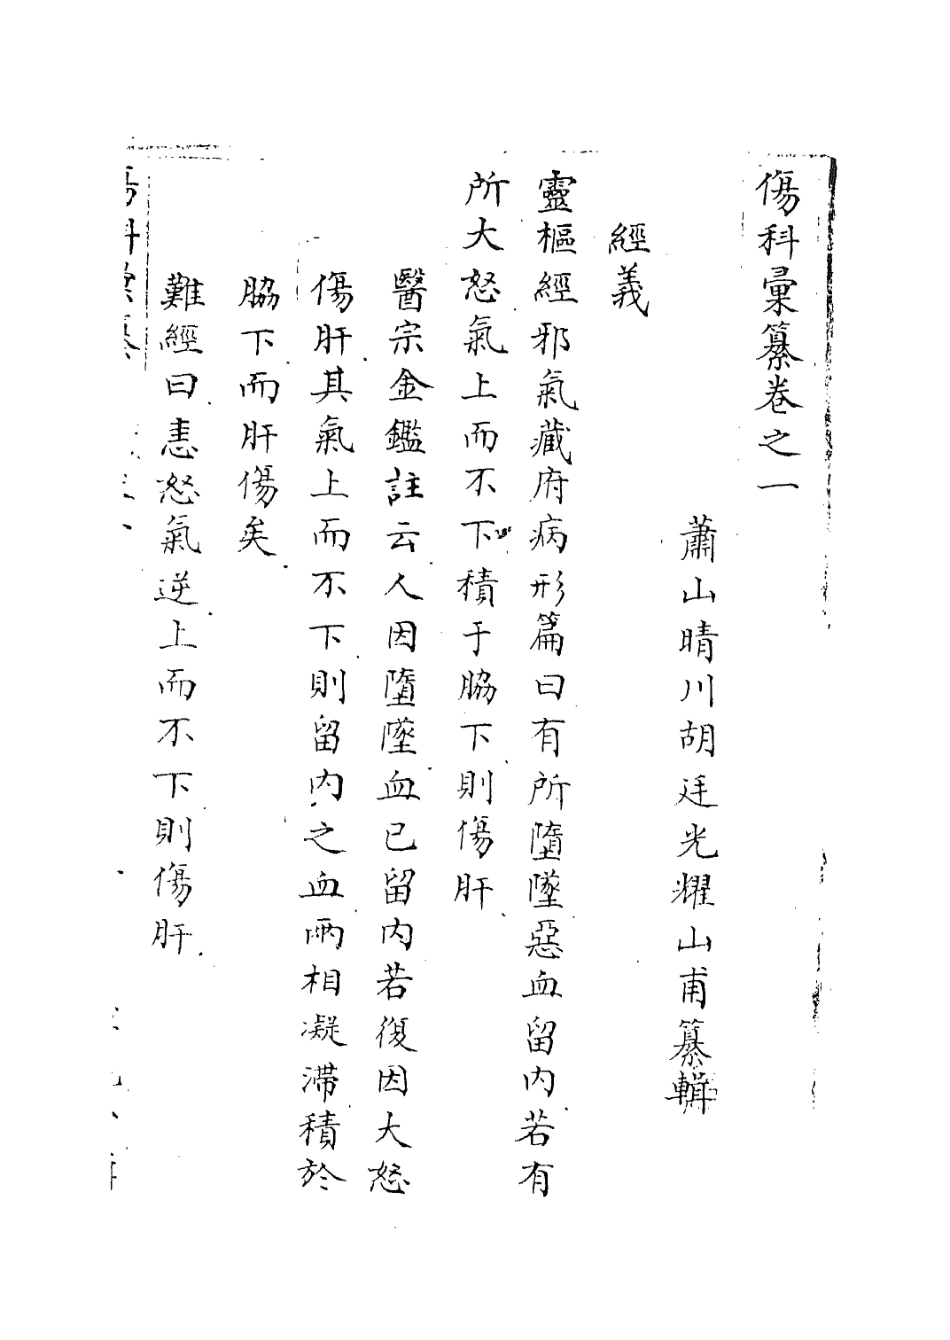 傷科彙纂卷之一
蕭山晴川胡廷光耀山甫纂輯
經義
靈樞經邪氣藏府病形篇曰有所墮墜惡血留內若有
所大怒氣上而不下積于脇下則傷肝
醫宗金鑑註云人因墮墜血已留內若復因大怒
傷肝其氣上而不下則留內之血兩相凝滯積於
脇下而肝傷矣
難經曰恚怒氣逆上而不下則傷肝